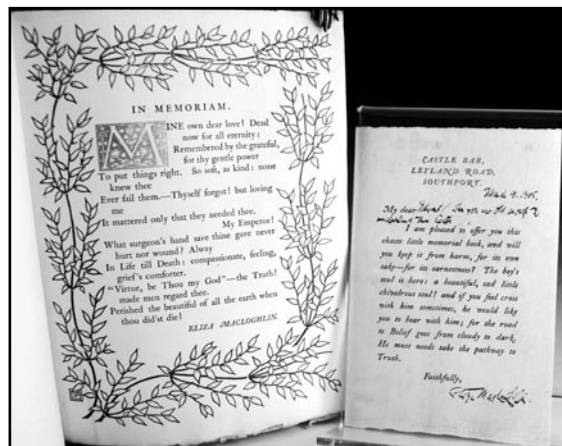 IN MEMORIAM.
MINE own dear love! Dead
now for all eternity:
Remembered by the grateful,
for thy gentle power
To put things right. So soft, as kind: none
knew thee
Ever fail them.—Thyself forgot! but loving
me
It mattered only that they needed thee.
My Emperor!
What surgeon's hand save thine gave never
hurt nor wound? Alway
In Life till Death: compassionate, feeling,
grief's comforter.
"Virtue, be Thou my God"—the Truth!
made men regard thee.
Perished the beautiful of all the earth when
thou did'st die!
ELIZA MACLOGHLIN.
CASTLE BAR,
LEYLAND ROAD,
SOUTHPORT.
My dear
I am pleased to offer you this
chaste little memorial book, and will
you keep it from harm, for its own
sake—for its earnestness? The boy's
soul is hers: a beautiful, sad little
chivalrous soul! and if you feel cross
with him sometimes, he would like
you to bear with him; for the road
to Belief goes from cloudy to dark.
He must needs take the pathway to
Truth.
Faithfully,